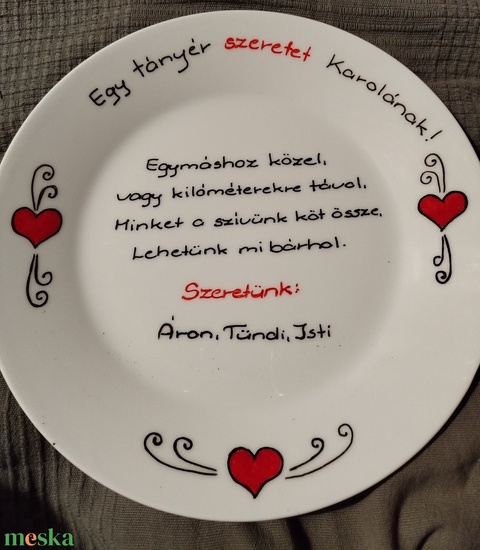 Egy tányér szeretet Karolának!
Egymáshoz közel,
vagy kilóméterekre távol.
Minket a szívünk köt össze,
Lehetünk mi bárhol.
Szeretünk:
Áron, Tündi, Isti
meska